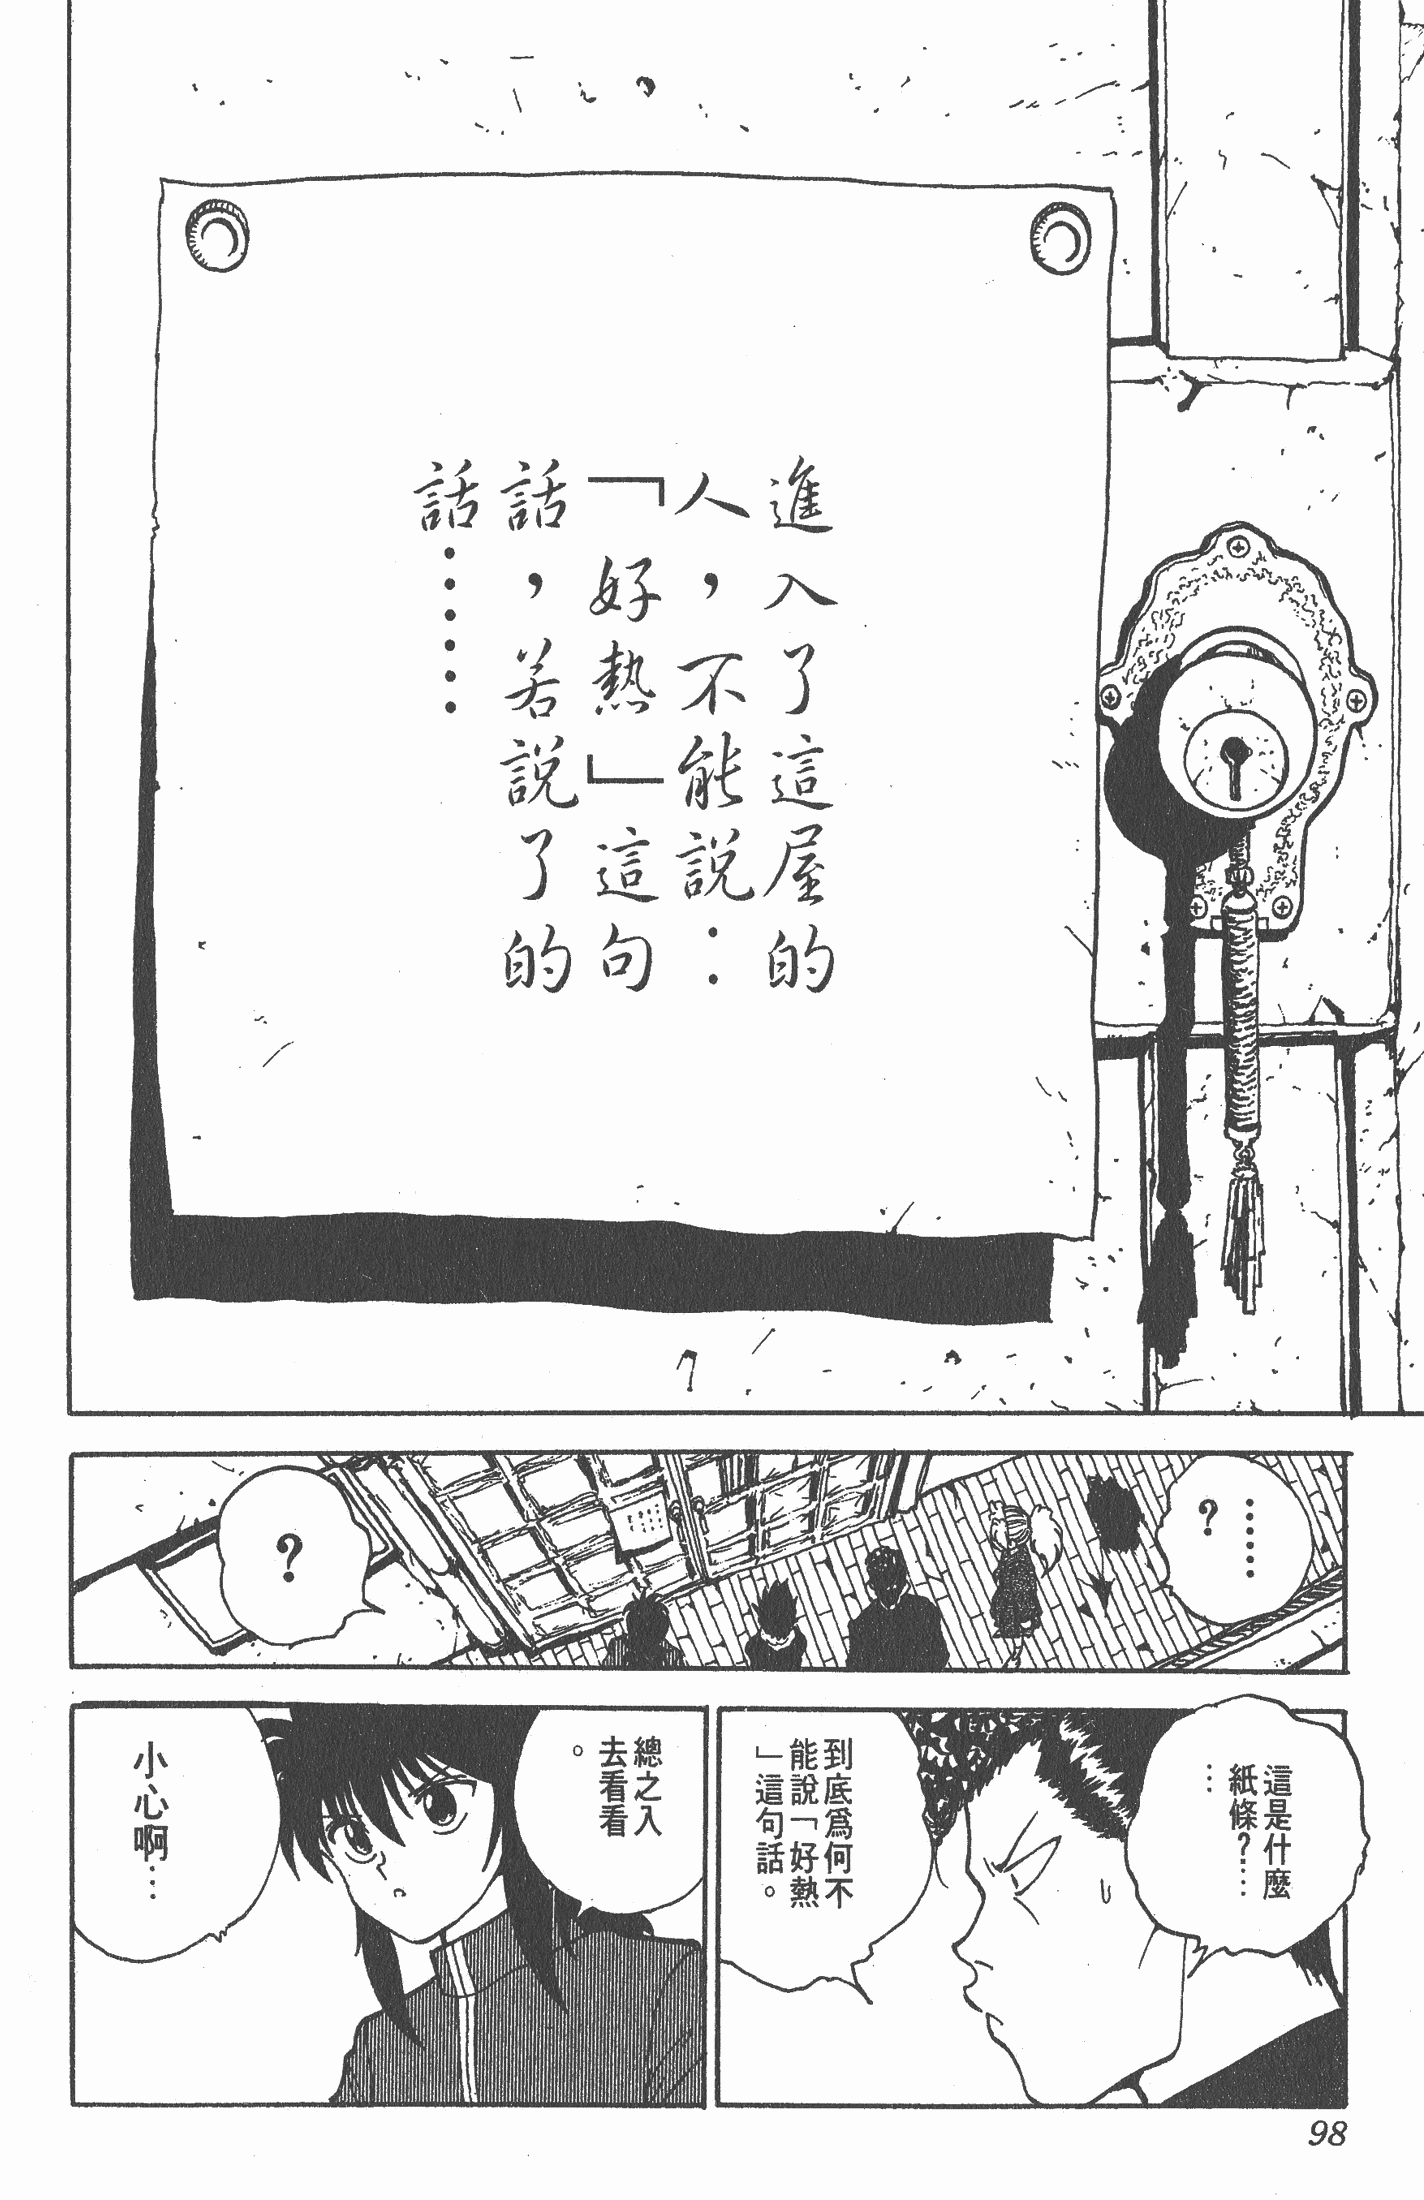 進入了這屋的
人，不能說：
「好熱」這句
話，若說了的
話⋯⋯
⋯⋯
？
？
這是什麼
紙條？⋯⋯
⋯
到底爲何不
能說「好熱
」這句話。
總之入
去看看
。
小心啊⋯
98